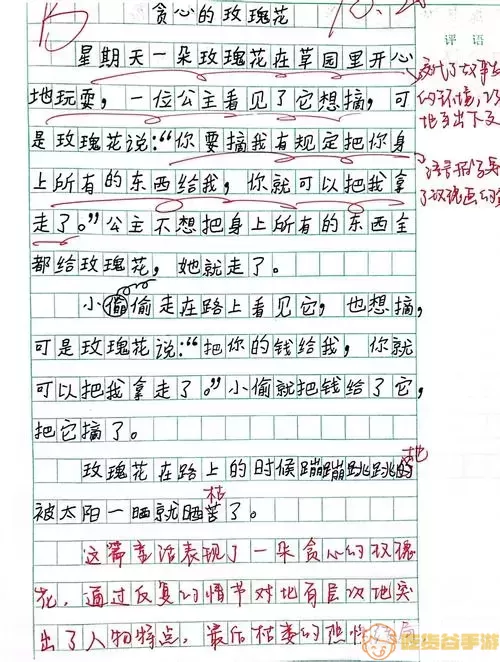 贪心的玫瑰花
评语
星期天一朵玫瑰花在草园里开心
地玩耍，一位公主看见了它想摘，可
是玫瑰花说：“你要摘我有规定把你身
上所有的东西给我，你就可以把我拿
走了。”公主不想把身上所有的东西全
都给玫瑰花，她就走了。
小偷偷走在路上看见它，也想摘，
可是玫瑰花说：“把你的钱给我，你就
可以把我拿走了。”小偷就把钱给了它，
把它摘了。
玫瑰花在路上的时候蹦蹦跳跳的
地
被太阳一晒就晒苦了。
枯
这篇童话表现了一朵贪心的玫瑰
花，通过反复的情节对地有层次地突
出了人物特点，最后枯萎的
侃货谷手游